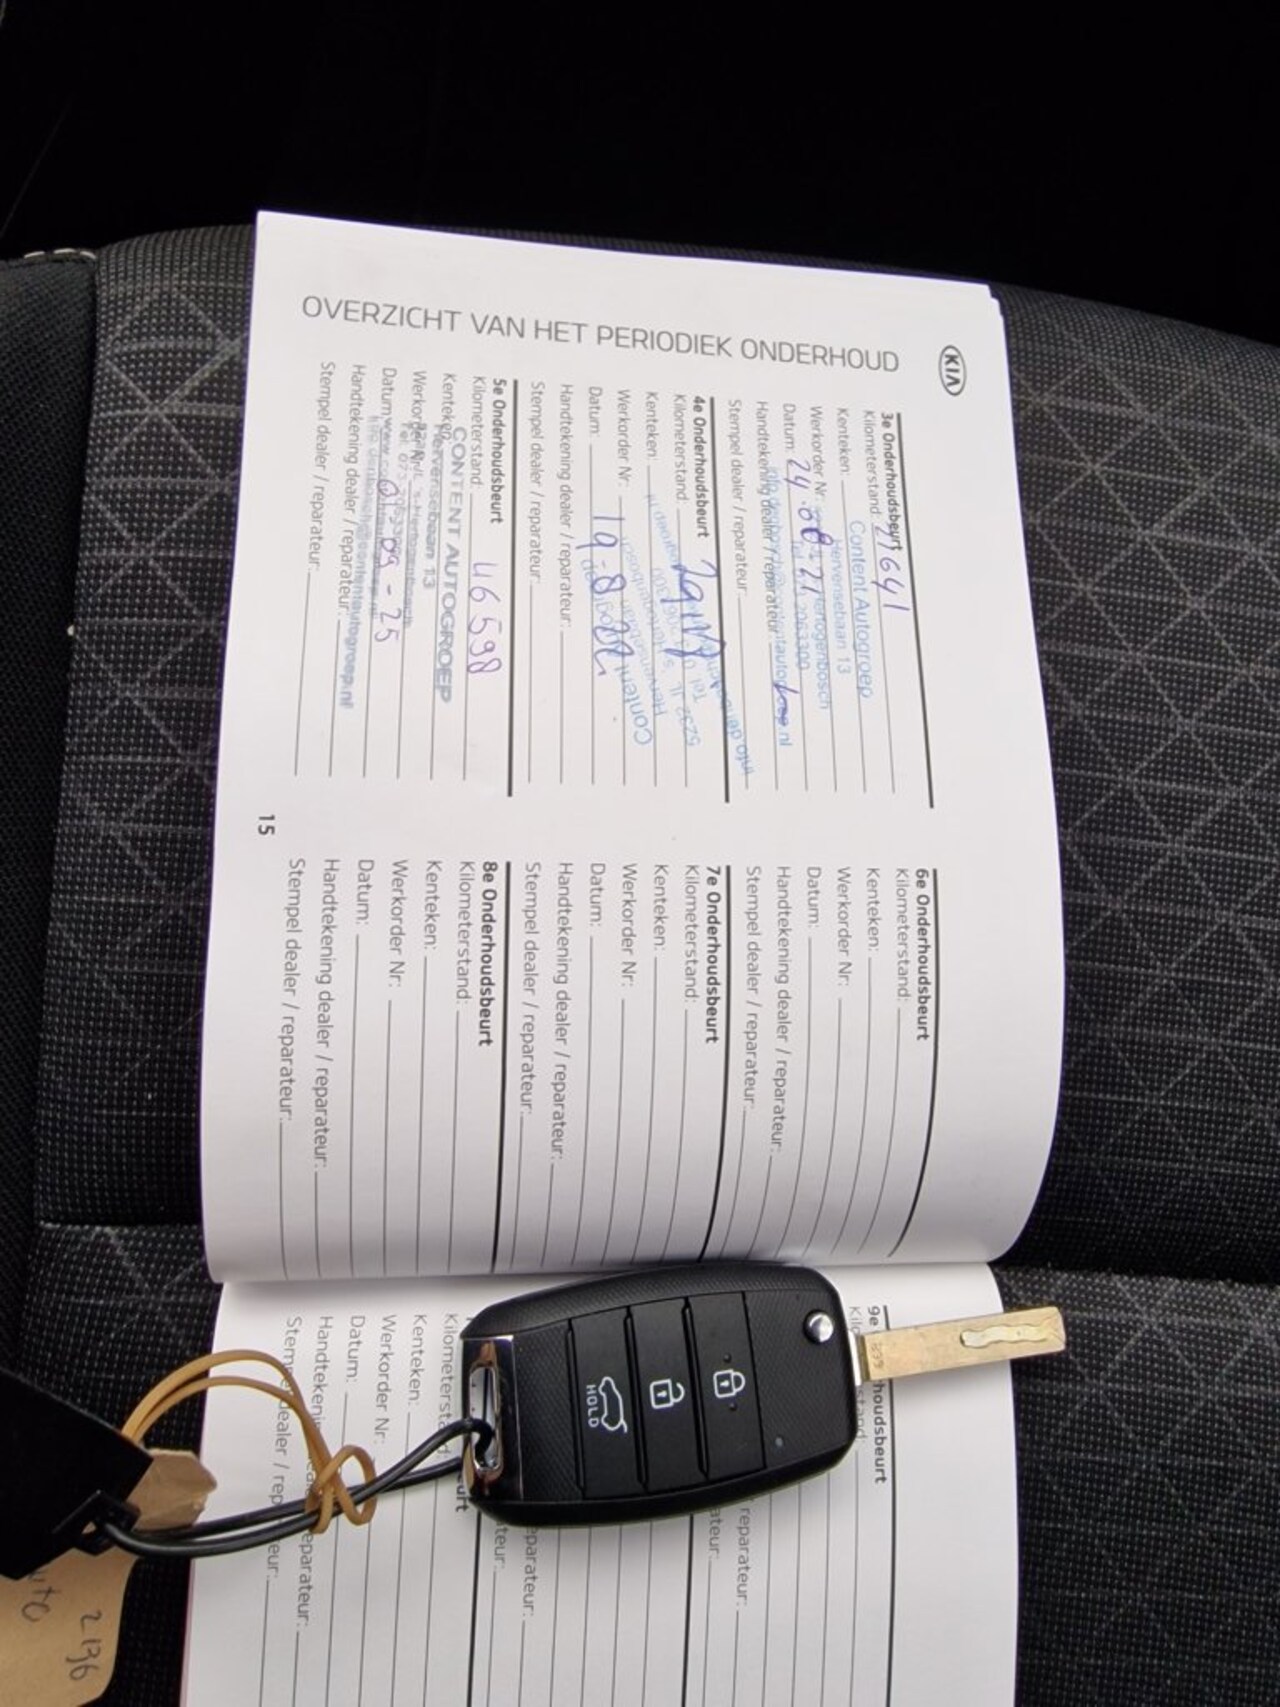 KIA
OVERZICHT VAN HET PERIODIEK ONDERHOUD
3e Onderhoudsbeurt
Kilometerstand: 27641
Kenteken:
Werkorder Nr:
Datum: 24.08.21
Handtekening dealer / reparateur:
Stempel dealer / reparateur:
Content Autogroep
Hervensebaan 13
4e Onderhoudsbeurt
Kilometerstand:
Kenteken:
Werkorder Nr:
Datum: 19-8-22
Handtekening dealer / reparateur:
Stempel dealer / reparateur:
Content
5e Onderhoudsbeurt
Kilometerstand: 46598
Kenteken:
Werkorder Nr:
Datum:
Handtekening dealer / reparateur:
Stempel dealer / reparateur:
CONTENT AUTOGROEP
Hervensebaan 13
15
6e Onderhoudsbeurt
Kilometerstand:
Kenteken:
Werkorder Nr:
Datum:
Handtekening dealer / reparateur:
Stempel dealer / reparateur:
7e Onderhoudsbeurt
Kilometerstand:
Kenteken:
Werkorder Nr:
Datum:
Handtekening dealer / reparateur:
Stempel dealer / reparateur:
8e Onderhoudsbeurt
Kilometerstand:
Kenteken:
Werkorder Nr:
Datum:
Handtekening dealer / reparateur:
Stempel dealer / reparateur:
9e
houdsbeurt
reparateur:
Kenteken:
Werkorder Nr:
Datum:
HOLD
2136